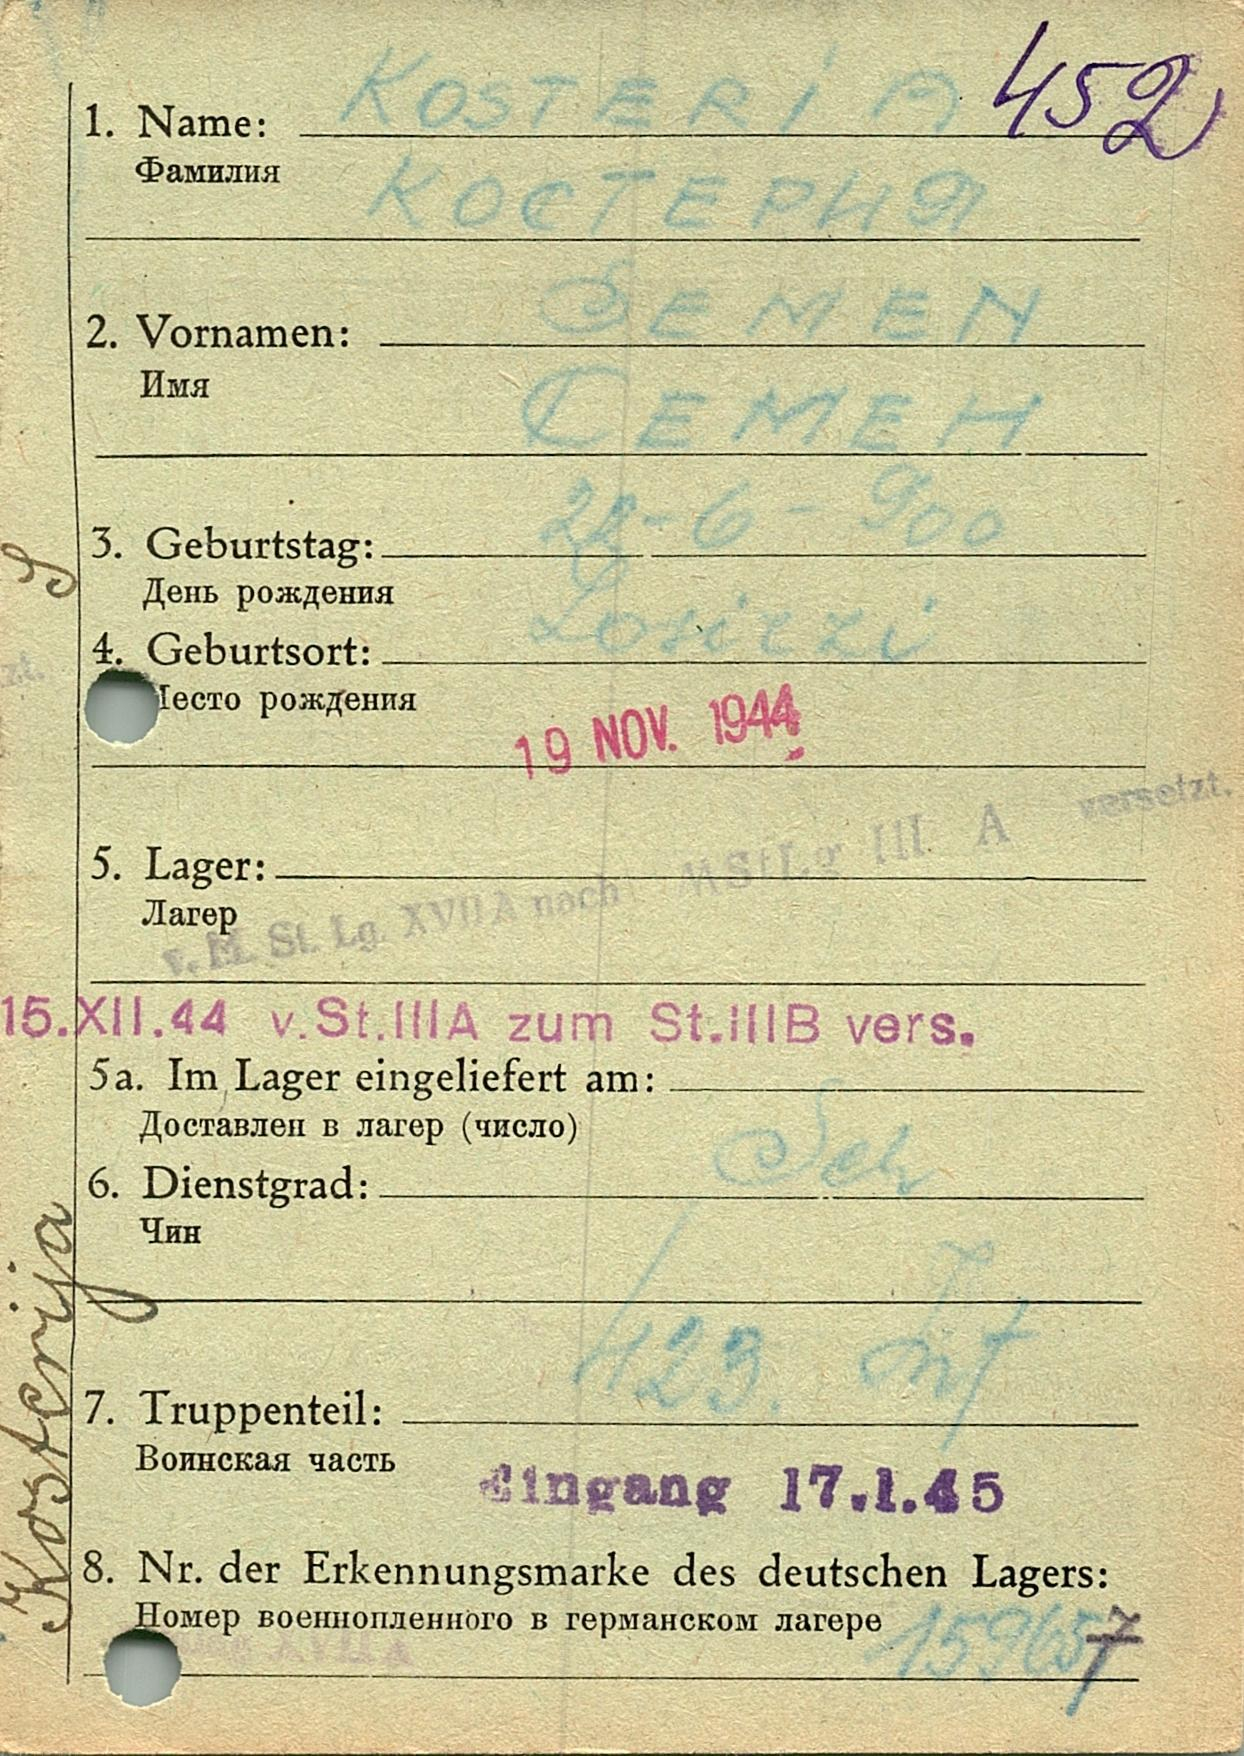 452
1. Name: KOSTERIA
Фамилия КОСТЕРИЯ
2. Vornamen: SEMEN
Имя СЕМЕН
3. Geburtstag: 22-6-900
День рождения
4. Geburtsort:
Место рождения
19 NOV. 1944
v. M. St. Lg. XVII A nach MStLg III A versetzt.
5. Lager:
Лагер
15.XII.44 v.St.IIIA zum St.IIIB vers.
5a. Im Lager eingeliefert am:
Доставлен в лагер (число)
6. Dienstgrad: Sch
Чин
7. Truppenteil: 423. Inf
Воинская часть
Eingang 17.1.45
8. Nr. der Erkennungsmarke des deutschen Lagers:
Номер военнопленного в германском лагере
159657
XVII A
Kosterija S
zt.